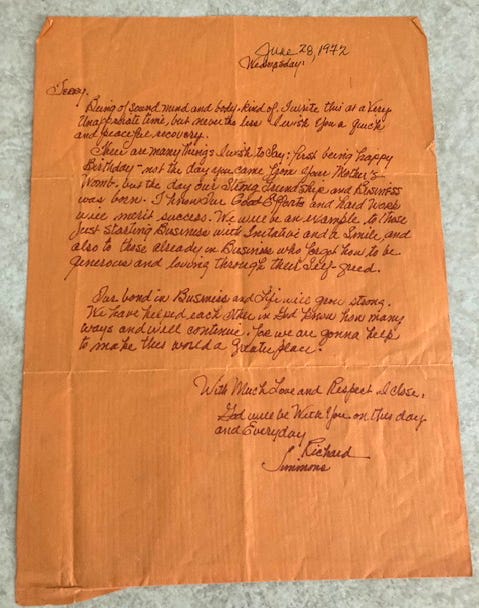 June 28, 1972
Wednesday.
Terry,
Being of sound mind and body-kind of. I write this at a Very
Unappropriate time, but never the less I wish You a quick
and peaceful recovery.
There are many things I wish to Say: first being happy
Birthday - not the day you came from Your Mother's
Womb, but the day our Strong friendship and Business
was born. I know our Good Efforts and hard work
will merit success. We will be an example to those
Just starting Business with Initative and a Smile, and
also to those already in Business who forgot how to be
generous and loving through their Self-Greed.
Our bond in Business and Life will grow strong.
We have helped each other in God knows how many
ways and will continue, for we are gonna help
to make this world a Greater place.
With Much Love and Respect I close,
God will be With You on this day
and Everyday
Richard
Simmons